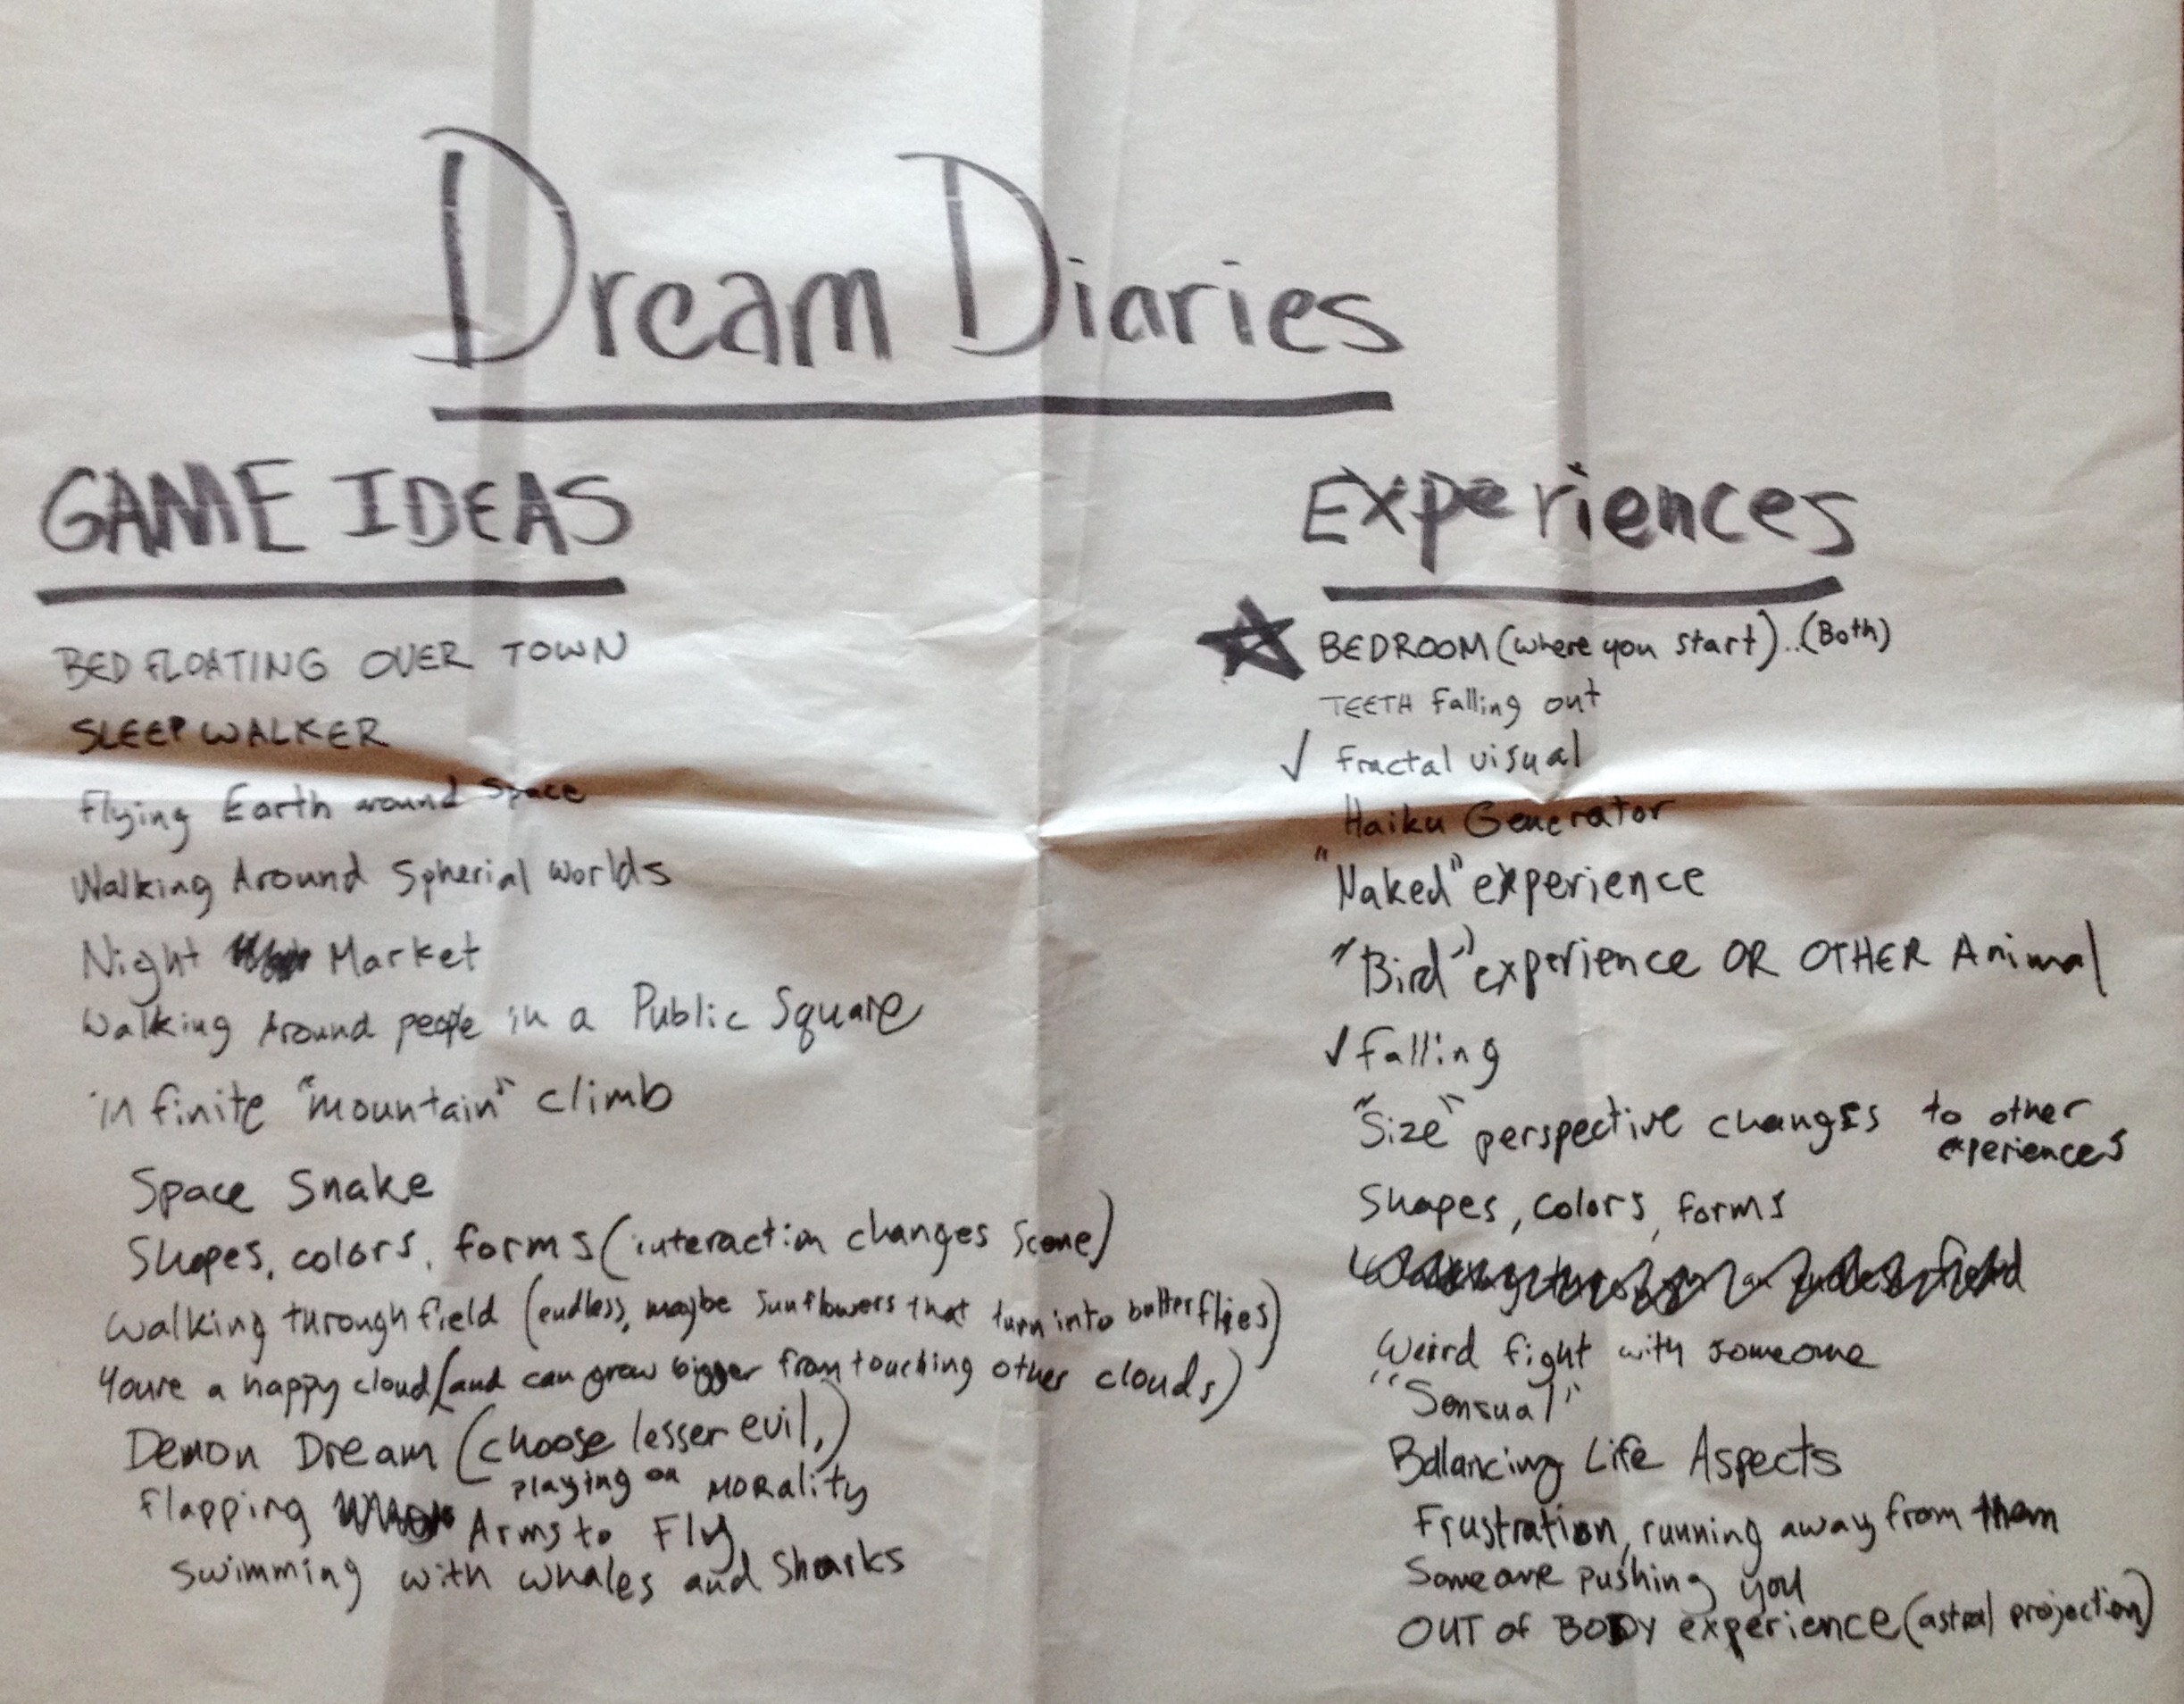 Dream Diaries
GAME IDEAS
BED FLOATING OVER TOWN
SLEEPWALKER
Flying Earth around Space
Walking Around Spherial Worlds
Night Market
Walking Around people in a Public Square
infinite "mountain" climb
Space Snake
Shapes, colors, forms (interaction changes scene)
Walking through field (endless, maybe sunflowers that turn into butterflies)
Youre a happy cloud (and can grow bigger from touching other clouds)
Demon Dream (choose lesser evil,)
playing on MORality
flapping Arms to Fly
swimming with whales and sharks
Experiences
BEDROOM (where you start)..(Both)
TEETH falling out
✓ Fractal visual
Haiku Generator
"Naked" experience
"Bird" experience OR OTHER Animal
✓ falling
"Size" perspective changes to other
experiences
Shapes, colors, forms
Walking through an endless field
Weird fight with someone
"Sensual"
Balancing Life Aspects
Frustration, running away from them
Someone pushing you
OUT of BODY experience (astral projection)